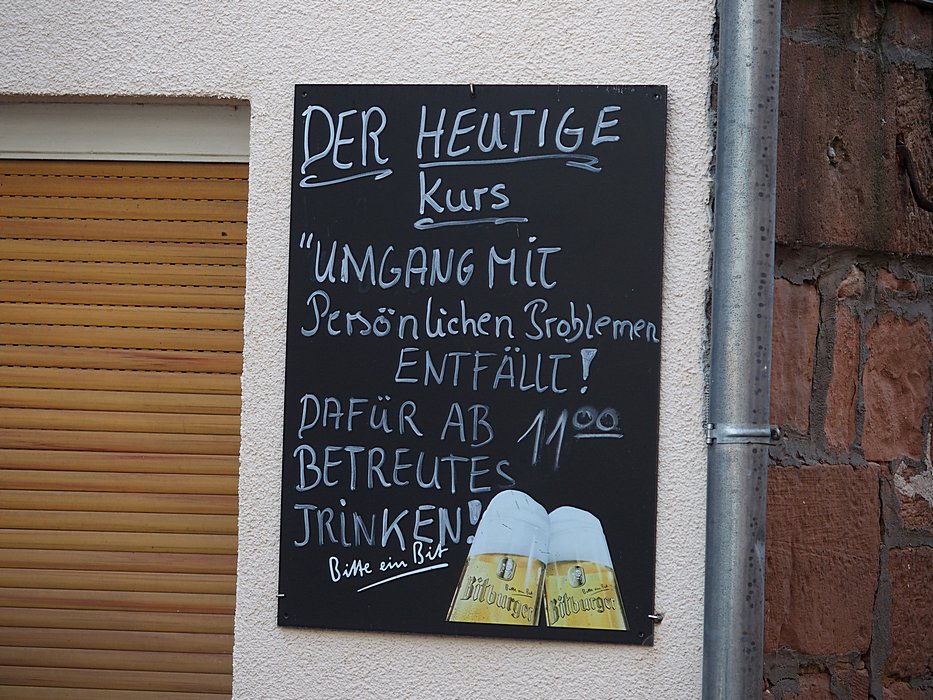 DER HEUTIGE
Kurs
"UMGANG MIT
Persönlichen Problemen
ENTFÄLLT!
DAFÜR AB 11⁰⁰
BETREUTES
TRINKEN!
Bitte ein Bit
Bitte ein Bit
Bitburger
Bitte ein Bit
Bitburger